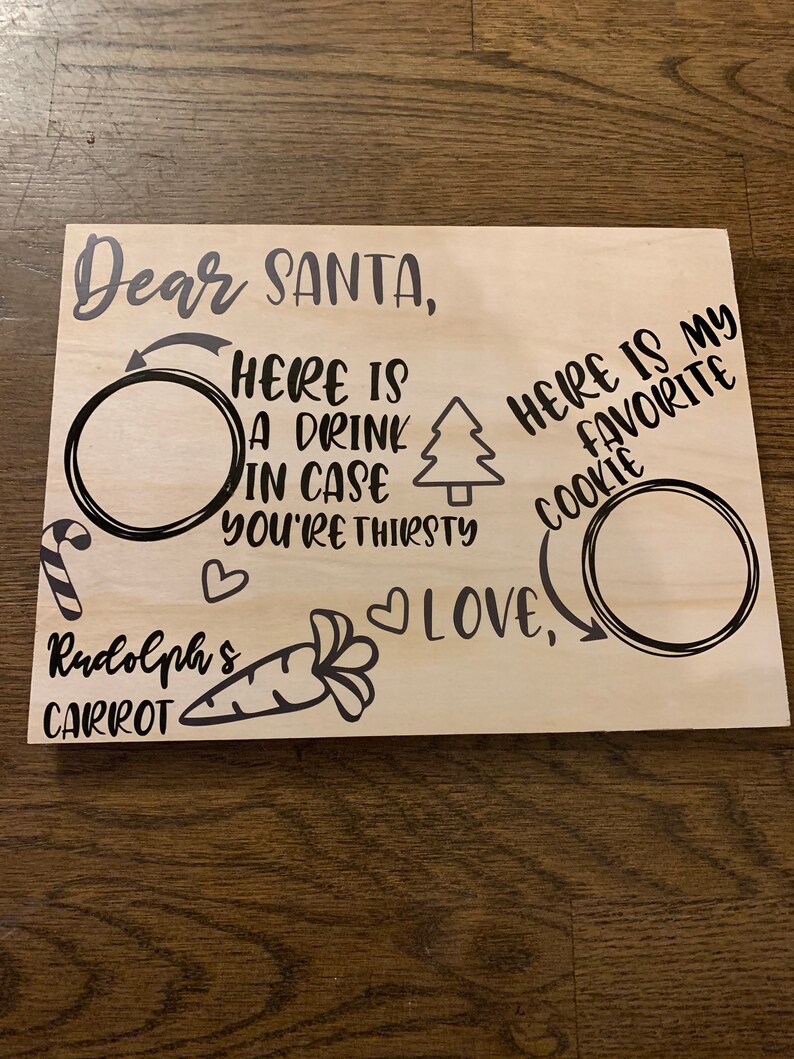 Dear SANTA,
HERE IS
A DRINK
IN CASE
YOU'RE THIRSTY
HERE IS MY
FAVORITE
COOKIE
LOVE,
Rudolph s
CARROT